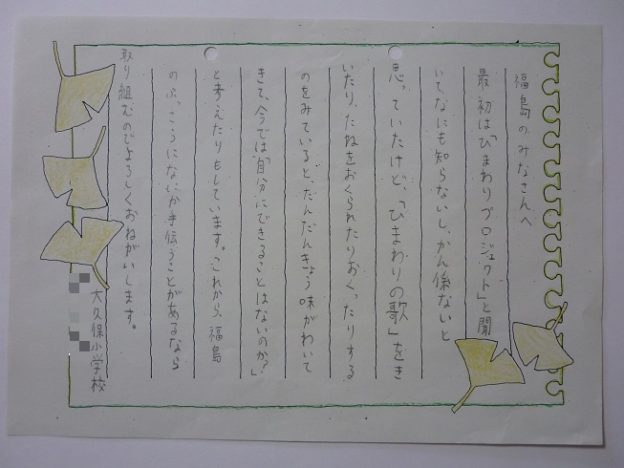 福島のみなさんへ
最初は「ひまわりプロジェクト」と聞
いてなにも知らないし、かん係ないと
思っていたけど、「ひまわりの歌」をき
いたり、たねをおくられたりおくったりする
のをみていると、だんだんきょう味がわいて
きて、今では「自分にできることはないのか？」
と考えたりもしています。これから、福島
のふっこうになにか手伝うことがあるなら
取り組むのでよろしくおねがいします。
大久保小学校